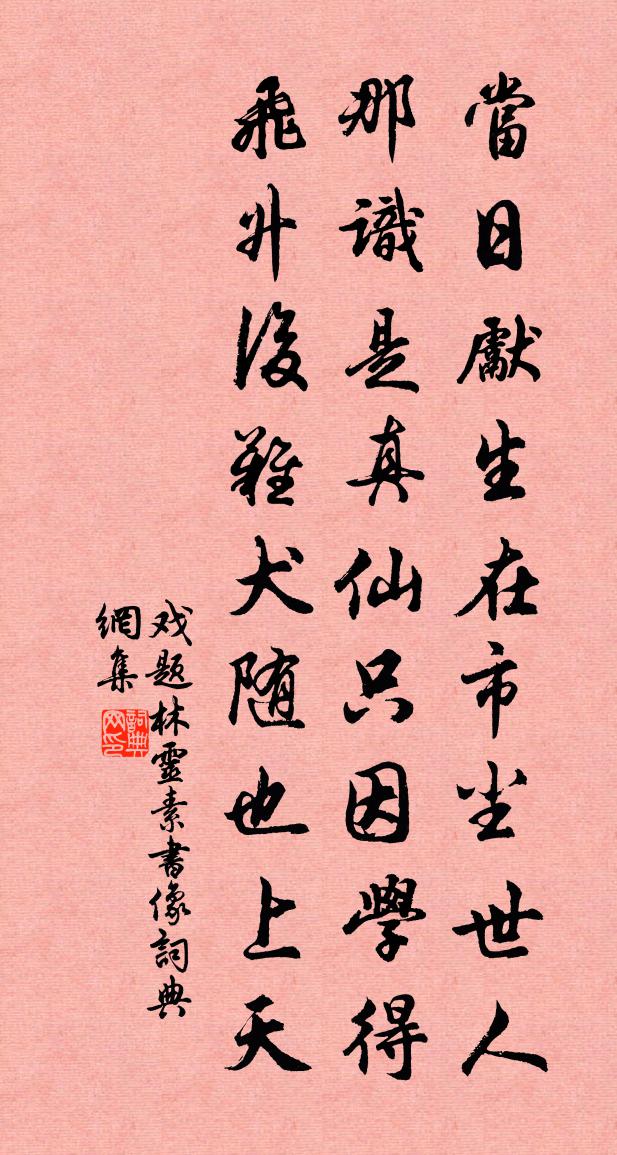 當日獻生在市尘世人
那識是真仙只因學得
飛升後雞犬随也上天
戏题林靈素書像詞典
網集
詞典
网印